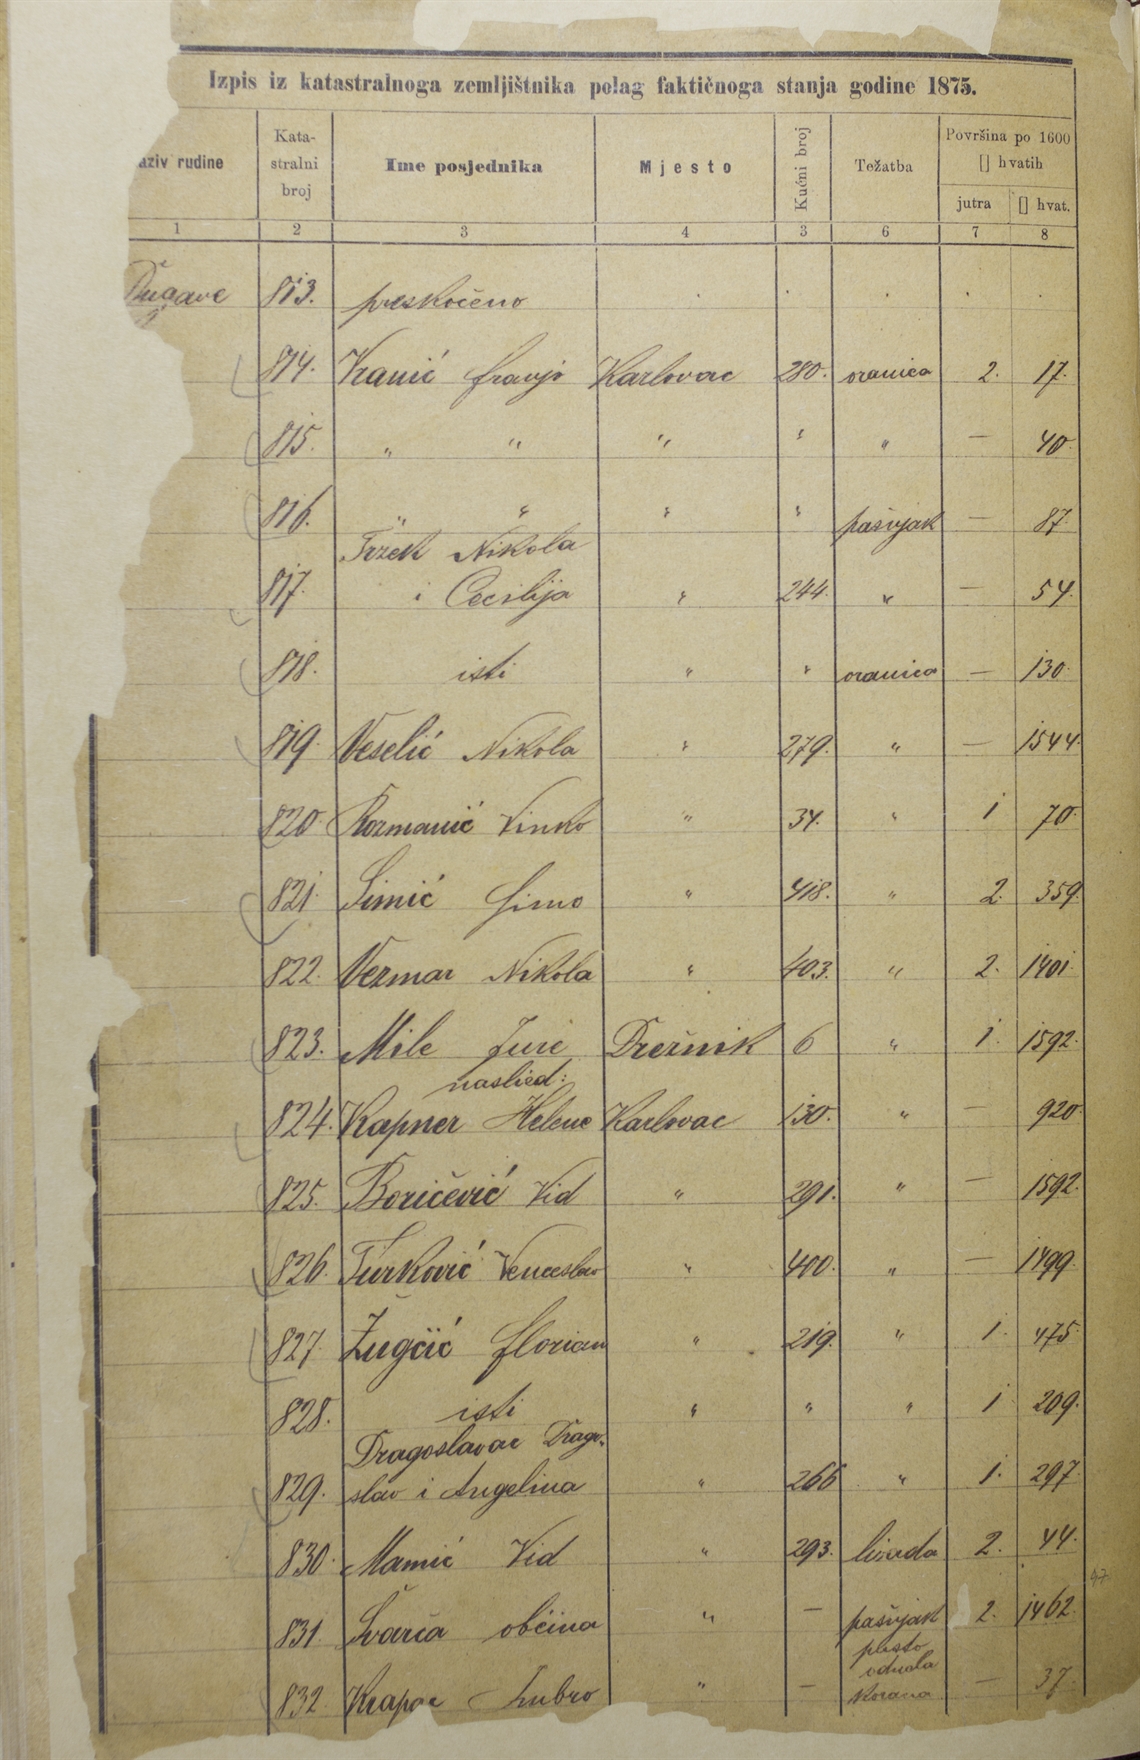 Izpis iz katastralnoga zemljištnika polag faktičnoga stanja godine 1875.
aziv rudine Kata-stralni broj Ime posjednika Mjesto Kućni broj Težatba Površina po 1600 [] hvatih
jutra [] hvat.
1 2 3 4 3 6 7 8
813. preskočeno
814. Kranić franjo Karlovac 280. oranica 2. 17.
815. " " " " " — 40.
816. " " " " pašnjak — 87.
Tržek Nikola
817. i Cecilija " 244. " — 54.
818. isti " " oranica — 130.
819. Veselić Nikola " 279. " — 1544.
820. Rozmanić Vinko " 34. " 1 70.
821. Simić Simo " 418. " 2. 359.
822. Vezmar Nikola " 403. " 2. 1401.
823. Mile Jure Drežnik 6 " 1. 1592.
naslied:
824. Kapner Helene Karlovac 130. " — 920.
825. Boričević Vid " 291. " — 1592.
826. Turković Venceslav " 400. " — 1499.
827. Žugčić florian " 219. " 1. 475.
828. isti " " " 1 209.
Dragoslavac Drago-
829. slav i Angelina " 266 " 1. 297.
830. Mamić Vid " 293. livada 2. 44.
831. Švarča občina " — pašnjak 2. 1462.
832. Krapac — " — Korana — 37.